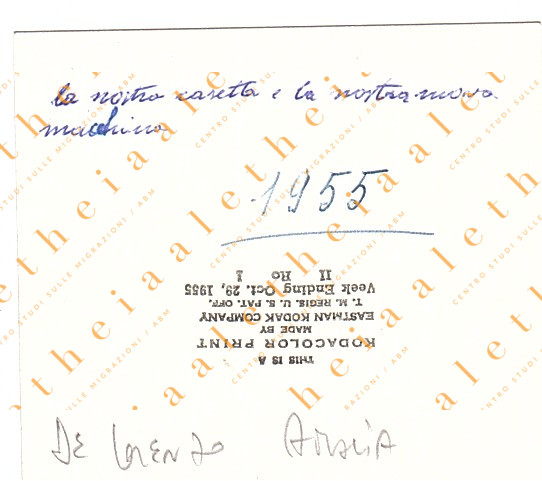 la nostra casetta e la nostra nuova
macchina
1955
THIS IS A
KODACOLOR PRINT
MADE BY
EASTMAN KODAK COMPANY
T. M. REGIS. U. S. PAT. OFF.
Week Ending Oct. 29, 1955
II Ro I
DE LORENZO AMALIA
aletheia
CENTRO STUDI SULLE MIGRAZIONI / ABM